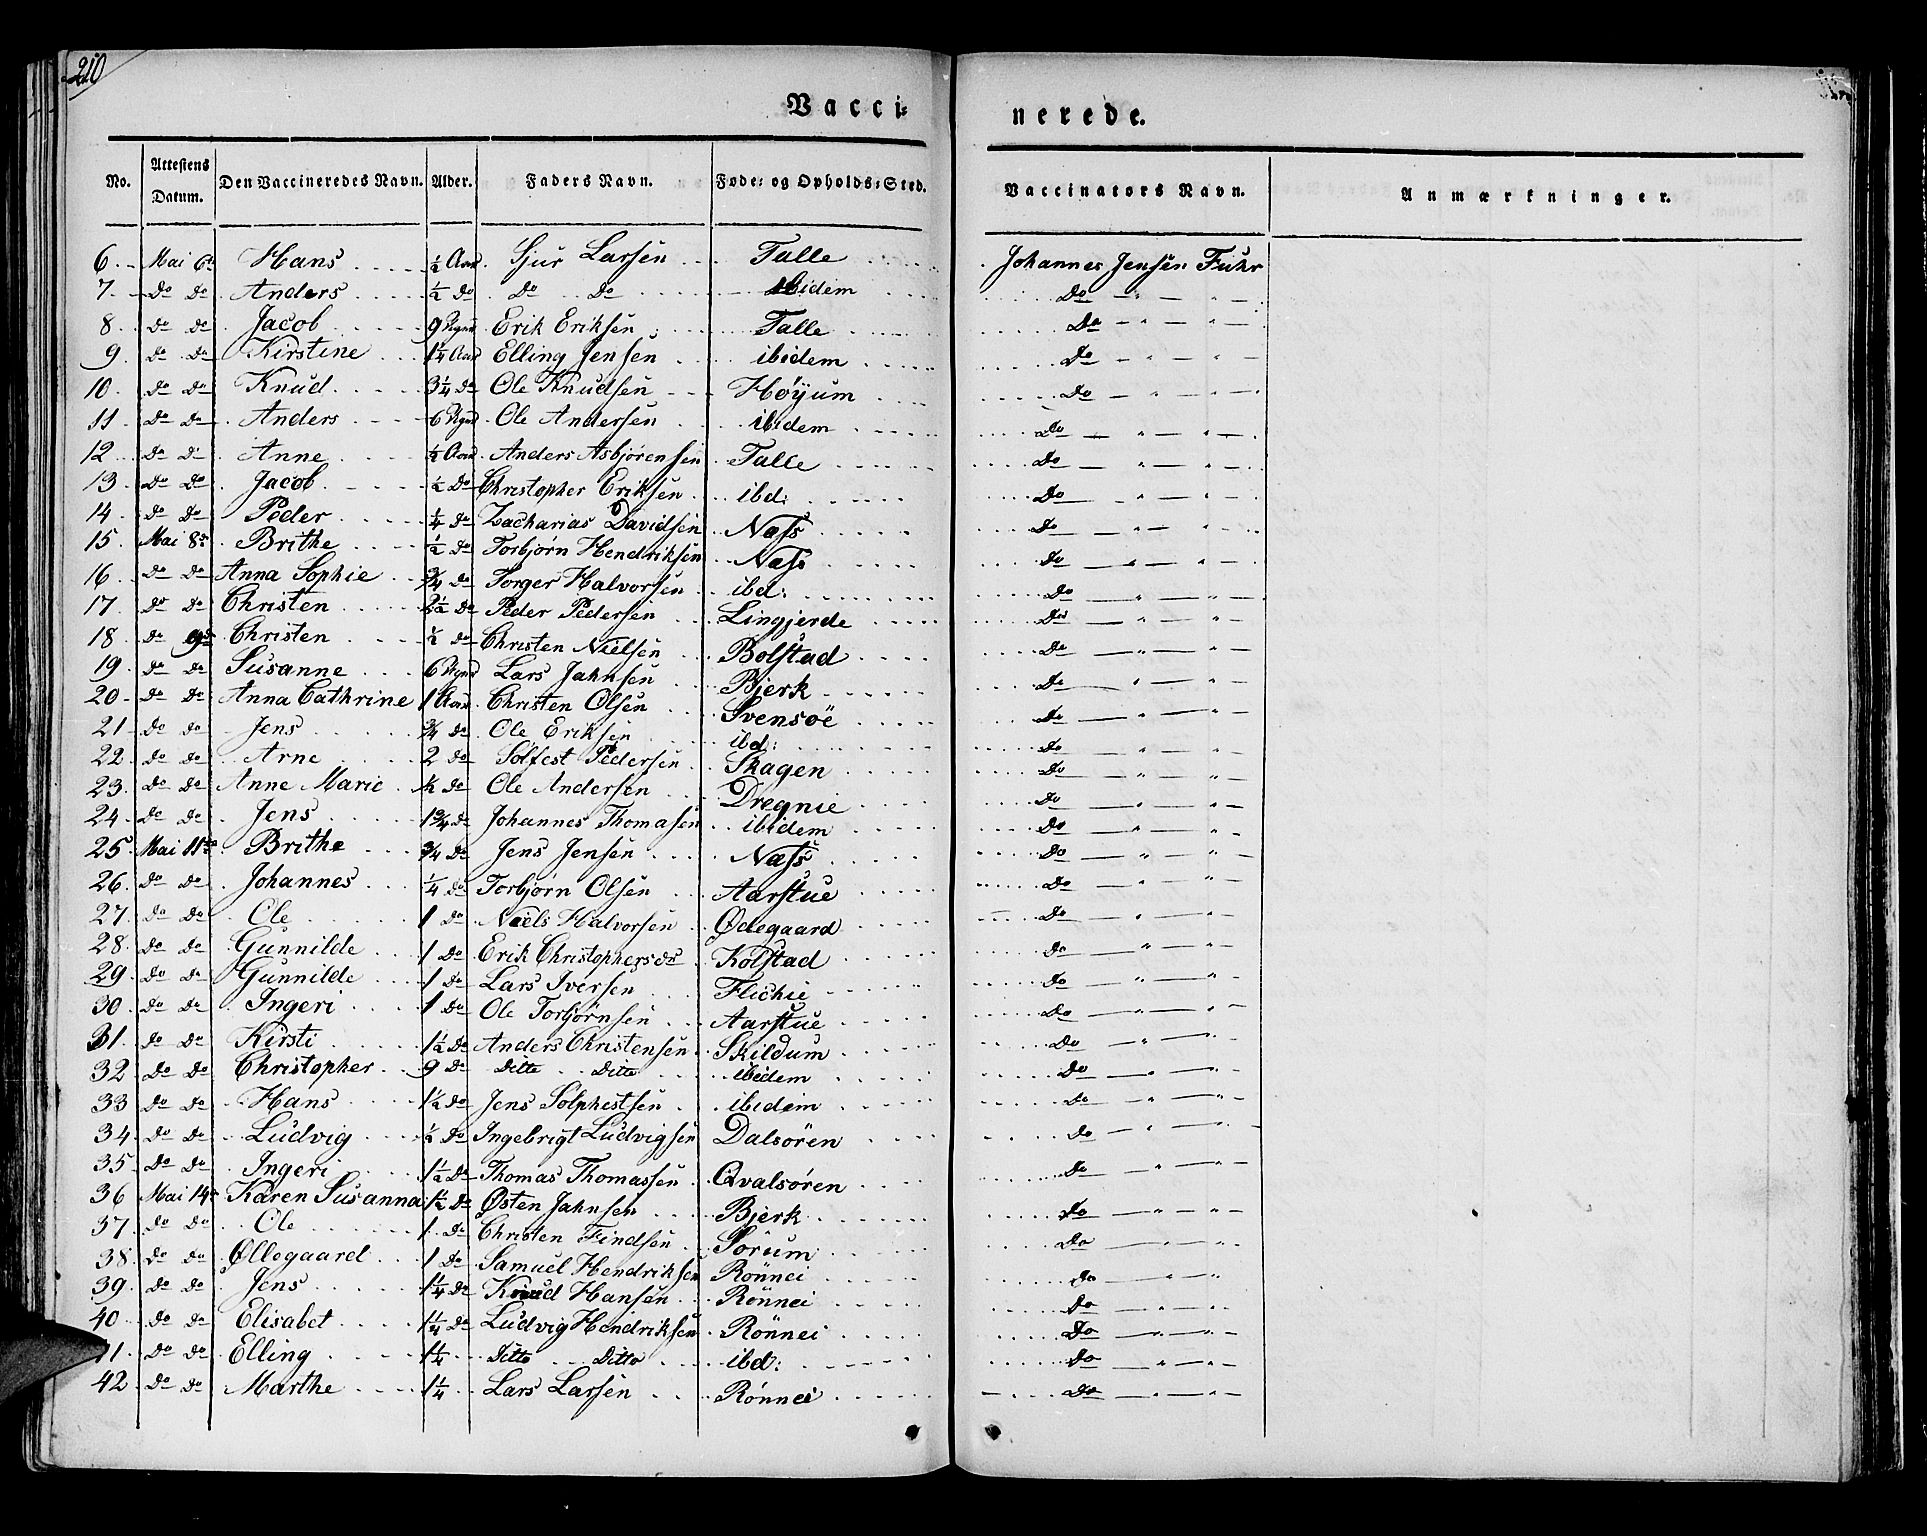 210
Vacci- nerede.
No. Attestens Datum. Den Vaccineredes Navn. Alder. Faders Navn. Føde- og Opholds-Sted. Vaccinators Navn. Anmærkninger.
6. Mai 6te Hans ½ Aar Sjur Larsen Talle Johannes Jensen Fuhr
7. Do Do Anders ½ Do Do Do ibidem Do
8. Do Do Jacob 9 Erik Eriksen Talle Do
9. Do Do Kirstine 1¼ Aar Elling Jensen ibidem Do
10. Do Do Knud 3¼ Do Ole Knudsen Høyum Do
11. Do Do Anders 6 Ole Andersen ibidem Do
12. Do Do Anne Aar Anders Asbjørensen Talle Do
13. Do Do Jacob ½ Do Christopher Eriksen ibd: Do
14. Do Do Peder ¼ Do Zacharias Davidsen Næss Do
15. Mai 8de Brithe ½ Do Torbjørn Hendriksen Næss Do
16. Do Do Anna Sophie ¾ Do Torger Halvorsen ibd: Do
17. Do Do Christen 2½ Do Peder Pedersen Lingjerde Do
18 Do 9de Christen ½ Do Christen Nielsen Bolstad Do
19. Do Do Susanne 6 Lars Jahnsen Bjerk Do
20. Do Do Anna Cathrine 1 Aar Christen Olsen Svensøe Do
21. Do Do Jens ¾ Do Ole Eriksen ibd: Do
22. Do Do Arne 2 Do Solfest Pedersen Skagen Do
23. Do Do Anne Marie ½ Do Ole Andersen Dregnie Do
24. Do Do Jens 1¾ Do Johannes Thomasen ibidem Do
25. Mai 11te Brithe ¾ Do Jens Jensen Næss Do
26. Do Do Johannes ¼ Do Torbjørn Olsen Aarstue Do
27. Do Do Ole 1 Do Naels Halvorsen Ødegaard Do
28. Do Do Gunnilde 1 Do Erik Christophersen Kolstad Do
29. Do Do Gunnilde 1 Do Lars Iversen Flichie Do
30. Do Do Ingeri 1 Do Ole Torbjörnsen Aarstue Do
31. Do Do Kirsti 1½ Do Anders Christensen Skildum Do
32 Do Do Christopher 9 Do Ditto Ditto ibidem Do
33 Do Do Hans 1½ Do Jens Solphestsen ibidem Do
34. Do Do Ludvig ½ Do Ingebrigt Ludvigsen Dalsören Do
35. Do Do Ingeri 1½ Do Thomas Thomassen Qvalsören Do
36 Mai 14de Karen Susanna 1½ Do Østen Jahnsen Bjerk Do
37. Do Do Ole 1 Do Christen Findsen Sorum Do
38. Do Do Øllegaard 1 Do Samuel Hendriksen Rönnei Do
39. Do Do Jens 1¼ Do Knud Hansen Rönnei Do
40. Do Do Elisabet 1¼ Do Ludvig Hendriksen Rönnei Do
41. Do Do Elling 1¼ Ditto Ditto ibd: Do
42 Do Do Marthe 1¼ Lars Larsen Rönnei Do